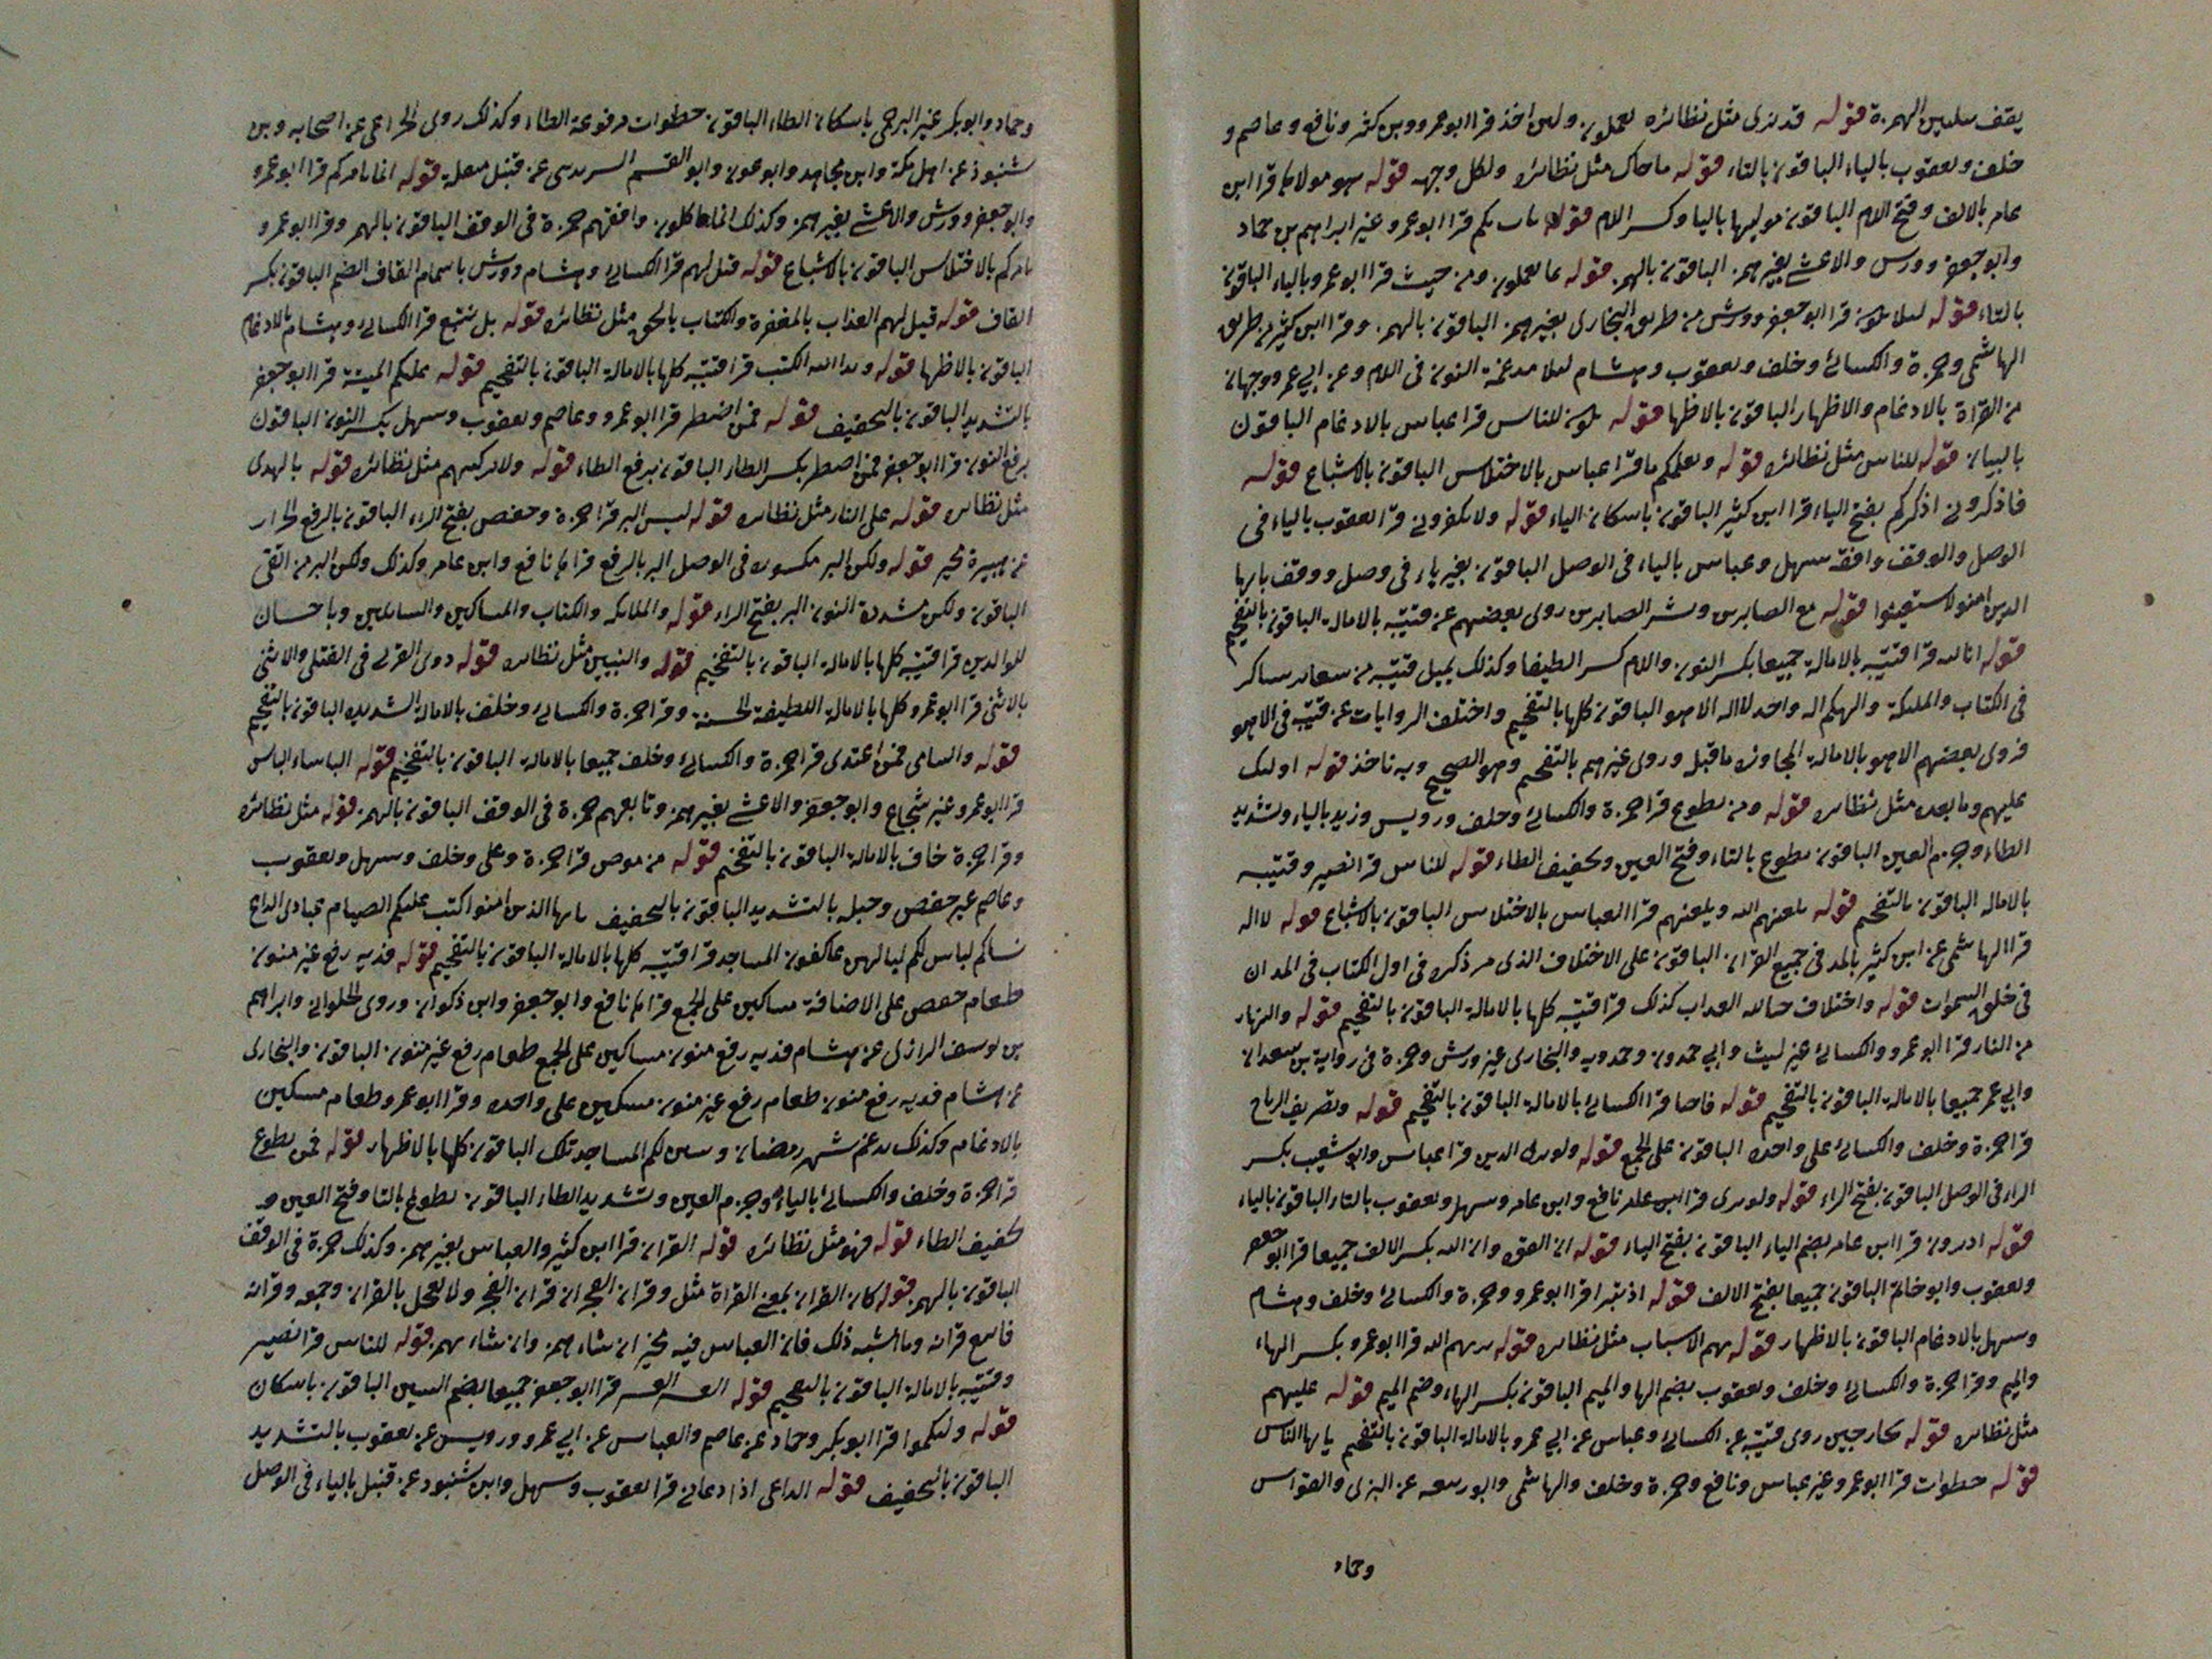 يقف بتليين الهمزة قوله قد نرى مثل نظائره يعملون ولين اخذ قرا ابو عمرو وبن كثير ونافع وعاصم و
خلف ويعقوب بالياء الباقون بالتاء قوله ماجاك مثل نظائره ولكل وجهه قوله هو مولاها قرا ابن
عامر بالالف وفتح اللام الباقون موليها باليا وكسر اللام قوله يات بكم قرا ابو عمرو غير ابراهيم بن حماد
وابو جعفر وورش والاعشى بغير همز الباقون بالهمز قوله عما يعملون ومن حيث قرا ابو عمرو بالياء الباقون
بالتاء قوله ليلا يكون قرا ابو جعفر وورش من طريق البخارى بغير همز الباقون بالهمز وقرا ابن كثير من طريق
الهاشمى وحمزة والكسائى وخلف ويعقوب وهشام ليلا مدغمة النون فى اللام وعن ابي عمرو وجهان
من القراة بالادغام والاظهار الباقون بالاظها قوله يكون للناس قرا عباس بالادغام الباقون
بالبيان قوله للناس مثل نظائره قوله ويعلمكم ما قرا عباس بالاختلاس الباقون بالاشباع قوله
فاذكرونى اذكركم بفتح الياء قرا ابن كثير الباقون باسكان الياء قوله ولا تكفرونى قرا يعقوب بالياء فى
الوصل والوقف وافقه سهل وعباس بالياء فى الوصل الباقون بغير ياء فى وصل ووقف يايها
الذين امنوا استعينوا قوله مع الصابرين وبشر الصابرين روى بعضهم عن قتيبة بالامالة الباقون بالتفخيم
قوله انا لله قرا قتيبة بالامالة جميعا بكسر النون واللام كسر الطيفا وكذلك يميل قتيبة من شعاير شاكر
فى الكتاب والملئكة والهكم اله واحد لا اله الا هو الباقون كلها بالتفخيم واختلف الروايات عن قتيبة فى الا هو
فروى بعضهم الا هو بالامالة لمجاورة ما قبل وروى غيرهم بالتفخيم وهو الصحيح وبه ناخذ قوله اوليك
عليهم وما بعده مثل نظاىره قوله ومن يطوع قرا حمزة والكسائى وخلف ورويس وزيد بالياء وتشديد
الطاء وجزم العين الباقون تطوع بالتاء وفتح العين وتخفيف الطاء قوله للناس قرا نصير وقتيبه
بالاماله الباقون بالتفخيم قوله يلعنهم الله ويلعنهم قرا العباس بالاختلاس الباقون بالاشباع قوله لا اله
قرا الهاشمى عن ابن كثير بالمد فى جميع القران الباقون على الاختلاف الذى مر ذكره فى اول الكتاب فى المد ان
فى خلق السموات قوله واختلاف حبا لله العذاب كذلك قرا قتيبة كلها بالامالة الباقون بالتفخيم قوله والنهار
من النار قرا ابو عمرو والكسائى غير ليث وابي حمدون وحمدويه والبخارى غير ورش وحمزة فى رواية بن سعدان
وابي عمر جميعا بالامالة الباقون بالتفخيم قوله فاحيا قرا الكسائى بالامالة الباقون بالتفخيم قوله وتصريف الرياح
قرا حمزة وخلف والكسائى على واحده الباقون على الجمع قوله ولو يرى الذين قرا عباس وابو شعيب بكسر
الراء فى الوصل الباقون بفتح الراء قوله ولو يرى قرا نافع وابن عامر وسهل ويعقوب بالتاء الباقون بالياء
قوله اذ يرون قرا ابن عامر بضم الياء الباقون بفتح الياء قوله ان القوة وان الله بكسر الالف جميعا قرا ابو جعفر
ويعقوب وابو حاتم الباقون جميعا بفتح الالف قوله اذ تبرا قرا ابو عمرو وحمزة والكسائى وخلف وهشام
وسهل بالادغام الباقون بالاظهار قوله بهم الاسباب مثل نظاىره قوله يريهم الله قرا ابو عمرو بكسر الهاء
والميم وقرا حمزة والكسائى وخلف ويعقوب بضم الها والميم الباقون بكسر الهاء وضم الميم قوله عليهم
مثل نظاىره قوله بخارجين روى قتيبة عن الكسائى وعباس عن ابي عمرو بالامالة الباقون بالتفخيم يايها الناس
قوله خطوات قرا ابو عمرو غير عباس ونافع وحمزة وخلف والهاشمى وابو ربيعه عن البزى والقواس
وحماد
وحماد وابو بكر غير البرجمى باسكان الطاء الباقون خطوات مرفوعة الطاء وكذلك روى الخزاعى عن اصحابه وبن
شنبوذ عن اهل مكة وابن مجاهد وابو عون وابو القسم عن قنبل قوله انما يامركم قرا ابو عمرو
وابو جعفر وورش والاعشى بغير همز وكذلك انما ياكلون وافقهم حمزة فى الوقف الباقون بالهمز وقرا ابو عمرو
يامركم بالاختلاس الباقون بالاشباع قوله قيل لهم قرا الكسائى وهشام وورش باشمام القاف الضم الباقون بكسر
القاف قوله قيل لهم العذاب بالمغفرة والكتاب بالحق مثل نظائره قوله بل نتبع قرا الكسائى وهشام بالادغام
الباقون بالاظها قوله وندا الله الكتب قرا قتيبة كلها بالامالة الباقون بالتفخيم قوله عليكم الميتة قرا ابو جعفر
بالتشديد الباقون بالتخفيف قوله فمن اضطر قرا ابو عمرو وعاصم ويعقوب وسهل بكسر النون الباقون
برفع النون قرا ابو جعفر فمن اضطر بكسر الطاء الباقون برفع الطاء قوله ولا يزكيهم مثل نظائره قوله بالهدى
مثل نظاىره قوله على النار مثل نظاىره قوله ليس البر قرا حمزة وحفص بفتح الراء الباقون بالرفع الخزاز
عن هبيرة تخير قوله ولكن البر مكسوره فى الوصل البر بالرفع قراها نافع وابن عامر وكذلك ولكن البر من اتقى
الباقون ولكن مشددة النون البر بفتح الراء قوله والملايكه والكتاب والمساكين والسايلين وباحسان
للوالدين قرا قتيبة كلها بالامالة الباقون بالتفخيم قوله والنبيين مثل نظاىره قوله ذوى القربى فى القتلى والانثى
بالانثى قرا ابو عمرو كلها بالامالة اللطيفة الحسنة وقرا حمزة والكسائى وخلف بالامالة الشديده الباقون بالتفخيم
قوله واليتامى فمن اعتدى قرا حمزة والكسائى وخلف جميعا بالامالة الباقون بالتفخيم قوله الباساء الباس
قرا ابو عمرو غير شجاع وابو جعفر والاعشى بغير همز وتابعهم حمزة فى الوقف الباقون بالهمز قوله مثل نظائره
وقرا حمزة خاف بالامالة الباقون بالتفخيم قوله من موص قرا حمزة وعلى وخلف وسهل ويعقوب
وعاصم غير حفص وجبله بالتشديد الباقون بالتخفيف يايها الذين امنوا كتب عليكم الصيام عبادى الداع
نسائكم لباس لكم لباس لهن عاكفون المساجد قرا قتيبة كلها بالامالة الباقون بالتفخيم قوله فديه رفع غير منون
طعام خفص على الاضافة مساكين على الجمع قراها نافع وابو جعفر وابن ذكوان وروى الحلوانى وابراهيم
بن يوسف الرازى عن هشام فديه رفع منون مساكين على الجمع طعام رفع غير منون الباقون والبخارى
عن هشام فديه رفع منون طعام رفع غير منون مسكين على واحده وقرا ابو عمرو طعام مسكين
بالادغام وكذلك يدغم شهر رمضان وتبين لكم المساجد تلك الباقون كلها بالاظهار قوله فمن تطوع
قرا حمزة وخلف والكسائى بالياء وجزم العين وتشديد الطاء الباقون تطوع بالتا وفتح العين و
تخفيف الطاء قوله فهو مثل نظائره قوله القران قرا ابن كثير والعباس بغير همز وكذلك حمزة فى الوقف
الباقون بالهمز قوله كان القران بمعنى القراة مثل وقران الفجر ان قران الفجر ولا تعجل بالقران وجمعه وقرانه
فاتبع قرانه وما اشبه ذلك فان العباس فيه مخير ان شاء همز وان شاء لم يهمز قوله للناس قرا نصير
وقتيبه بالامالة الباقون بالتفخيم قوله اليسر العسر قرا ابو جعفر جميعا بضم السين الباقون باسكان
قوله ولتكملوا قرا ابو بكر وحماد عن عاصم والعباس عن ابي عمرو ورويس عن يعقوب بالتشديد
الباقون بالتخفيف قوله الداعى اذا دعانى قرا يعقوب وسهل وابن شنبوذ عن قنبل بالياء فى الوصل